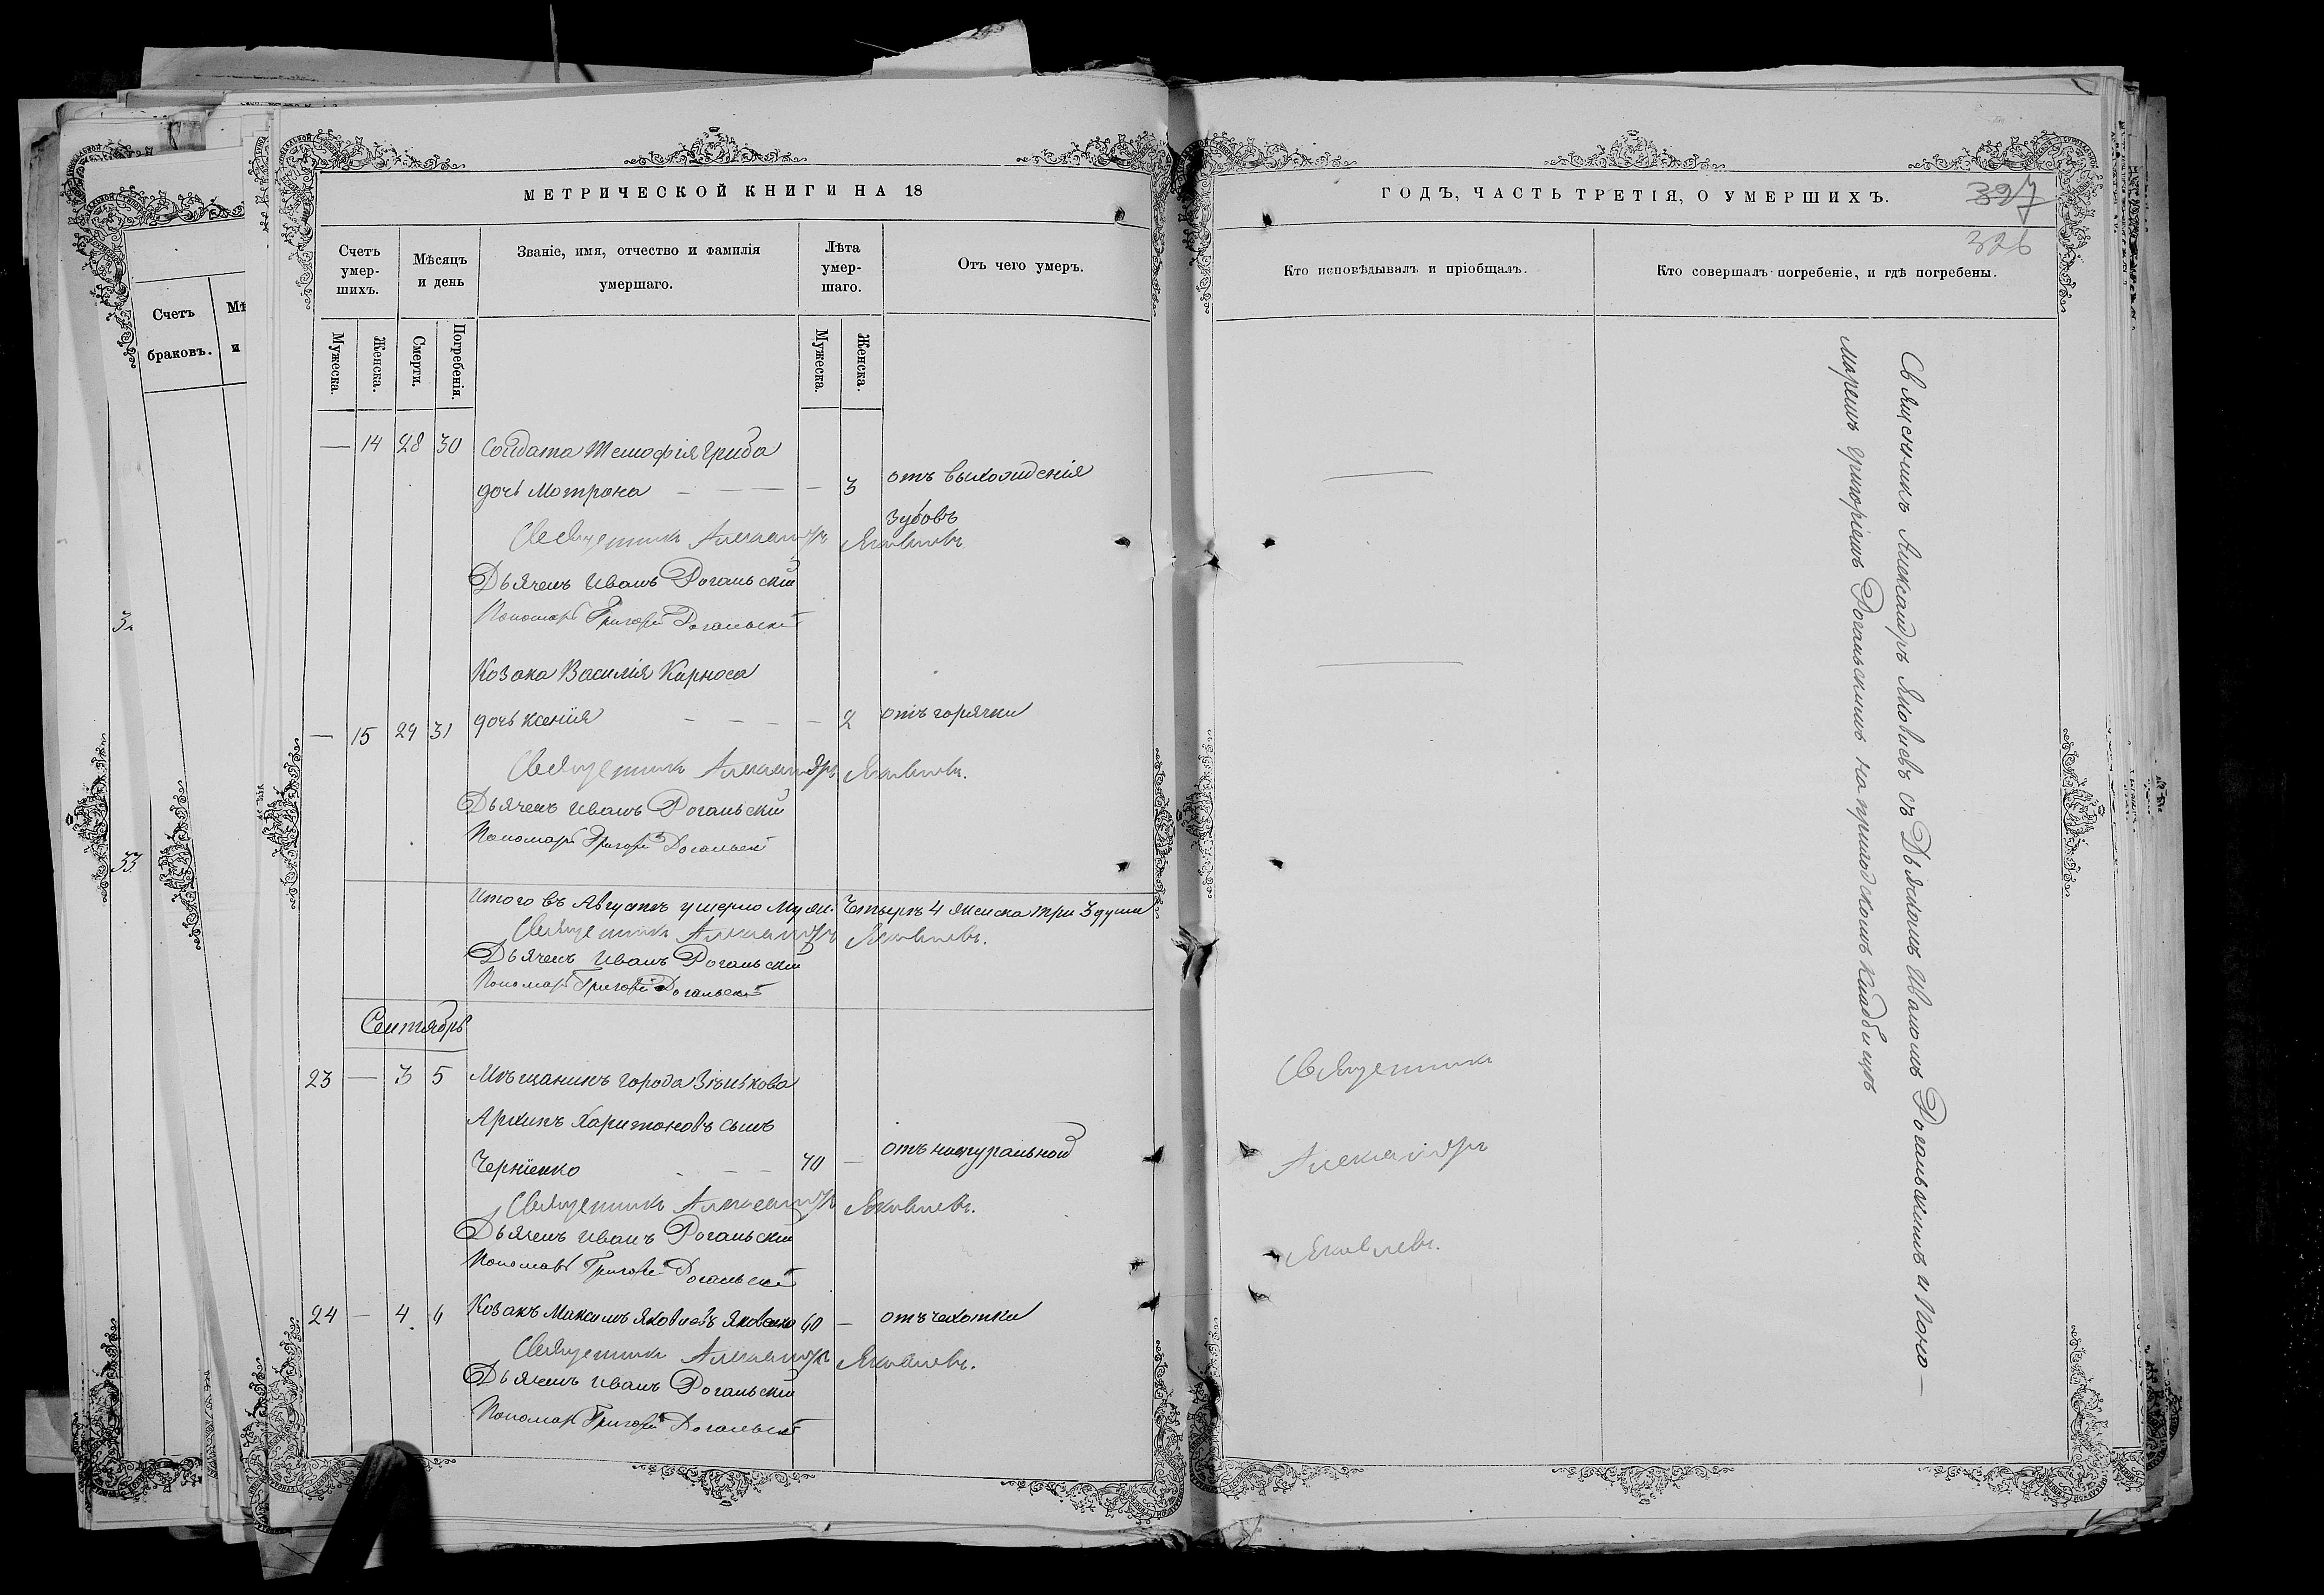 МЕТРИЧЕСКОЙ КНИГИ НА 18
Счетъ умер-шихъ.
Мѣсяцъ и день
Званіе, имя, отчество и фамилія умершаго.
Лѣта умер-шаго.
Отъ чего умеръ.
Мужеска.
Женска.
Смерти.
Погребенія.
Мужеска.
Женска.
— 14 28 30 Солдата Тимофія Гриба
дочь Мотрона — — — — 3 отъ выхожденія
зубовъ
Священникъ Александръ Яковлевъ
Дьячекъ Иванъ Рогальскій
Пономарь Григорій Рогальскій
Козака Василія Карноса
— 15 29 31 дочь Ксенія — — — — 2 отъ горячки
Священникъ Александръ Яковлевъ.
Дьячекъ Иванъ Рогальскій
Пономарь Григорій Рогальскій
Итого въ Августѣ умерло Муж. Четыре 4 женска три 3 души
Священникъ Александръ Яковлевъ.
Дьячекъ Иванъ Рогальскій
Пономарь Григорій Рогальскій
Сентябрь
23 — 3 5 Мѣщанинъ города Зѣнькова
Архипъ Харитоновъ сынъ
Чернѣенко — — — 70 — отъ натуральной
Священникъ Александръ Яковлевъ.
Дьячекъ Иванъ Рогальскій
Пономарь Григорій Рогальскій
24 — 4 6 Козакъ Максимъ Яковлевъ Яковенко 60 — отъ чахотки
Священникъ Александръ Яковлевъ.
Дьячекъ Иванъ Рогальскій
Пономарь Григорій Рогальскій
ГОДЪ, ЧАСТЬ ТРЕТІЯ, О УМЕРШИХЪ.
397
326
Кто исповѣдывалъ и пріобщалъ.
Кто совершалъ погребеніе, и гдѣ погребены.
Священникъ
Александръ
Яковлевъ.
Священникъ Александръ Яковлевъ съ Дьячкомъ Иваномъ Рогальскимъ и Поно-
маремъ Григоріемъ Рогальскимъ на приходскомъ кладбищѣ
Счетъ
браковъ.
Мѣ
и
32
33